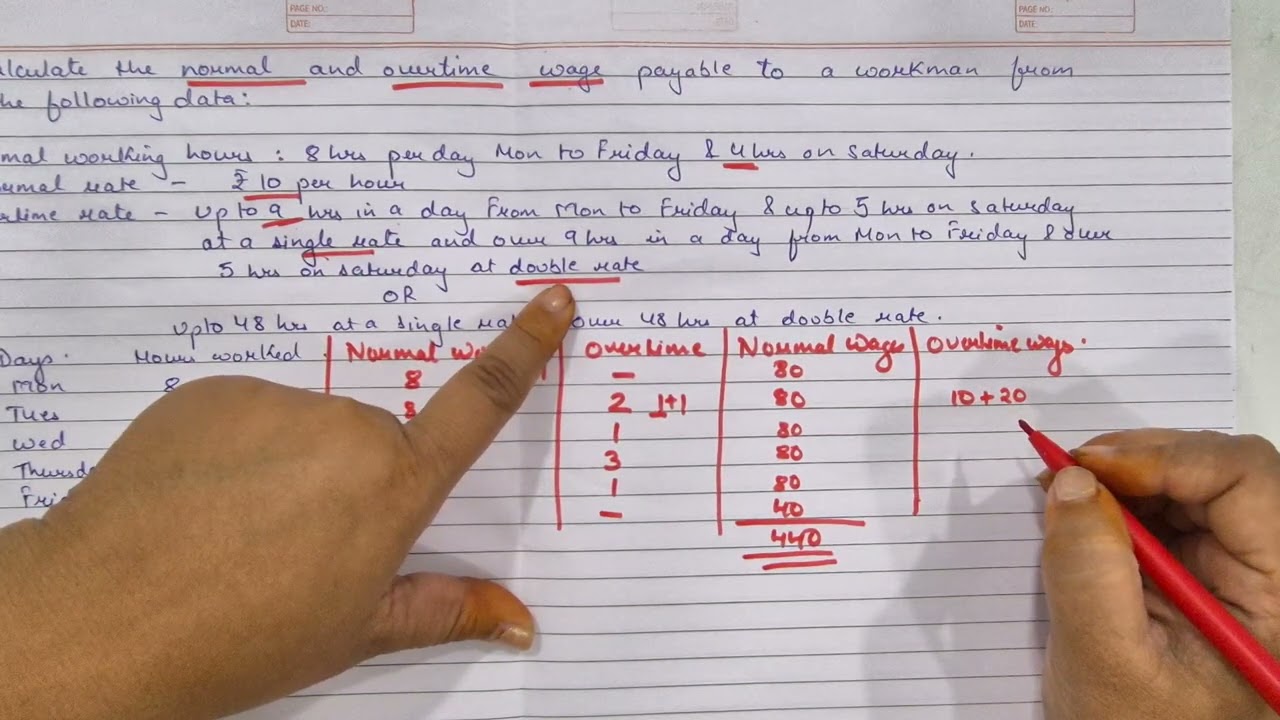 PAGE NO.:
DATE:
PAGE NO.:
DATE:
lculate the normal and overtime wage payable to a workman from
he following data:
mal working hours : 8 hrs per day Mon to Friday & 4 hrs on Saturday.
rmal rate - ₹ 10 per hour
rtime rate - Up to 9 hrs in a day from Mon to Friday & upto 5 hrs on Saturday
at a single rate and over 9 hrs in a day from Mon to Friday & over
5 hrs on Saturday at double rate
OR
Upto 48 hrs at a single over 48 hrs at double rate.
Days. Hours worked Normal Overtime Normal wages Overtime wages.
Mon 8 8 – 80
Tues 8 2 1+1 80 10+20
Wed 1 80
Thursd 3 80
Fri 1 80
– 40
440